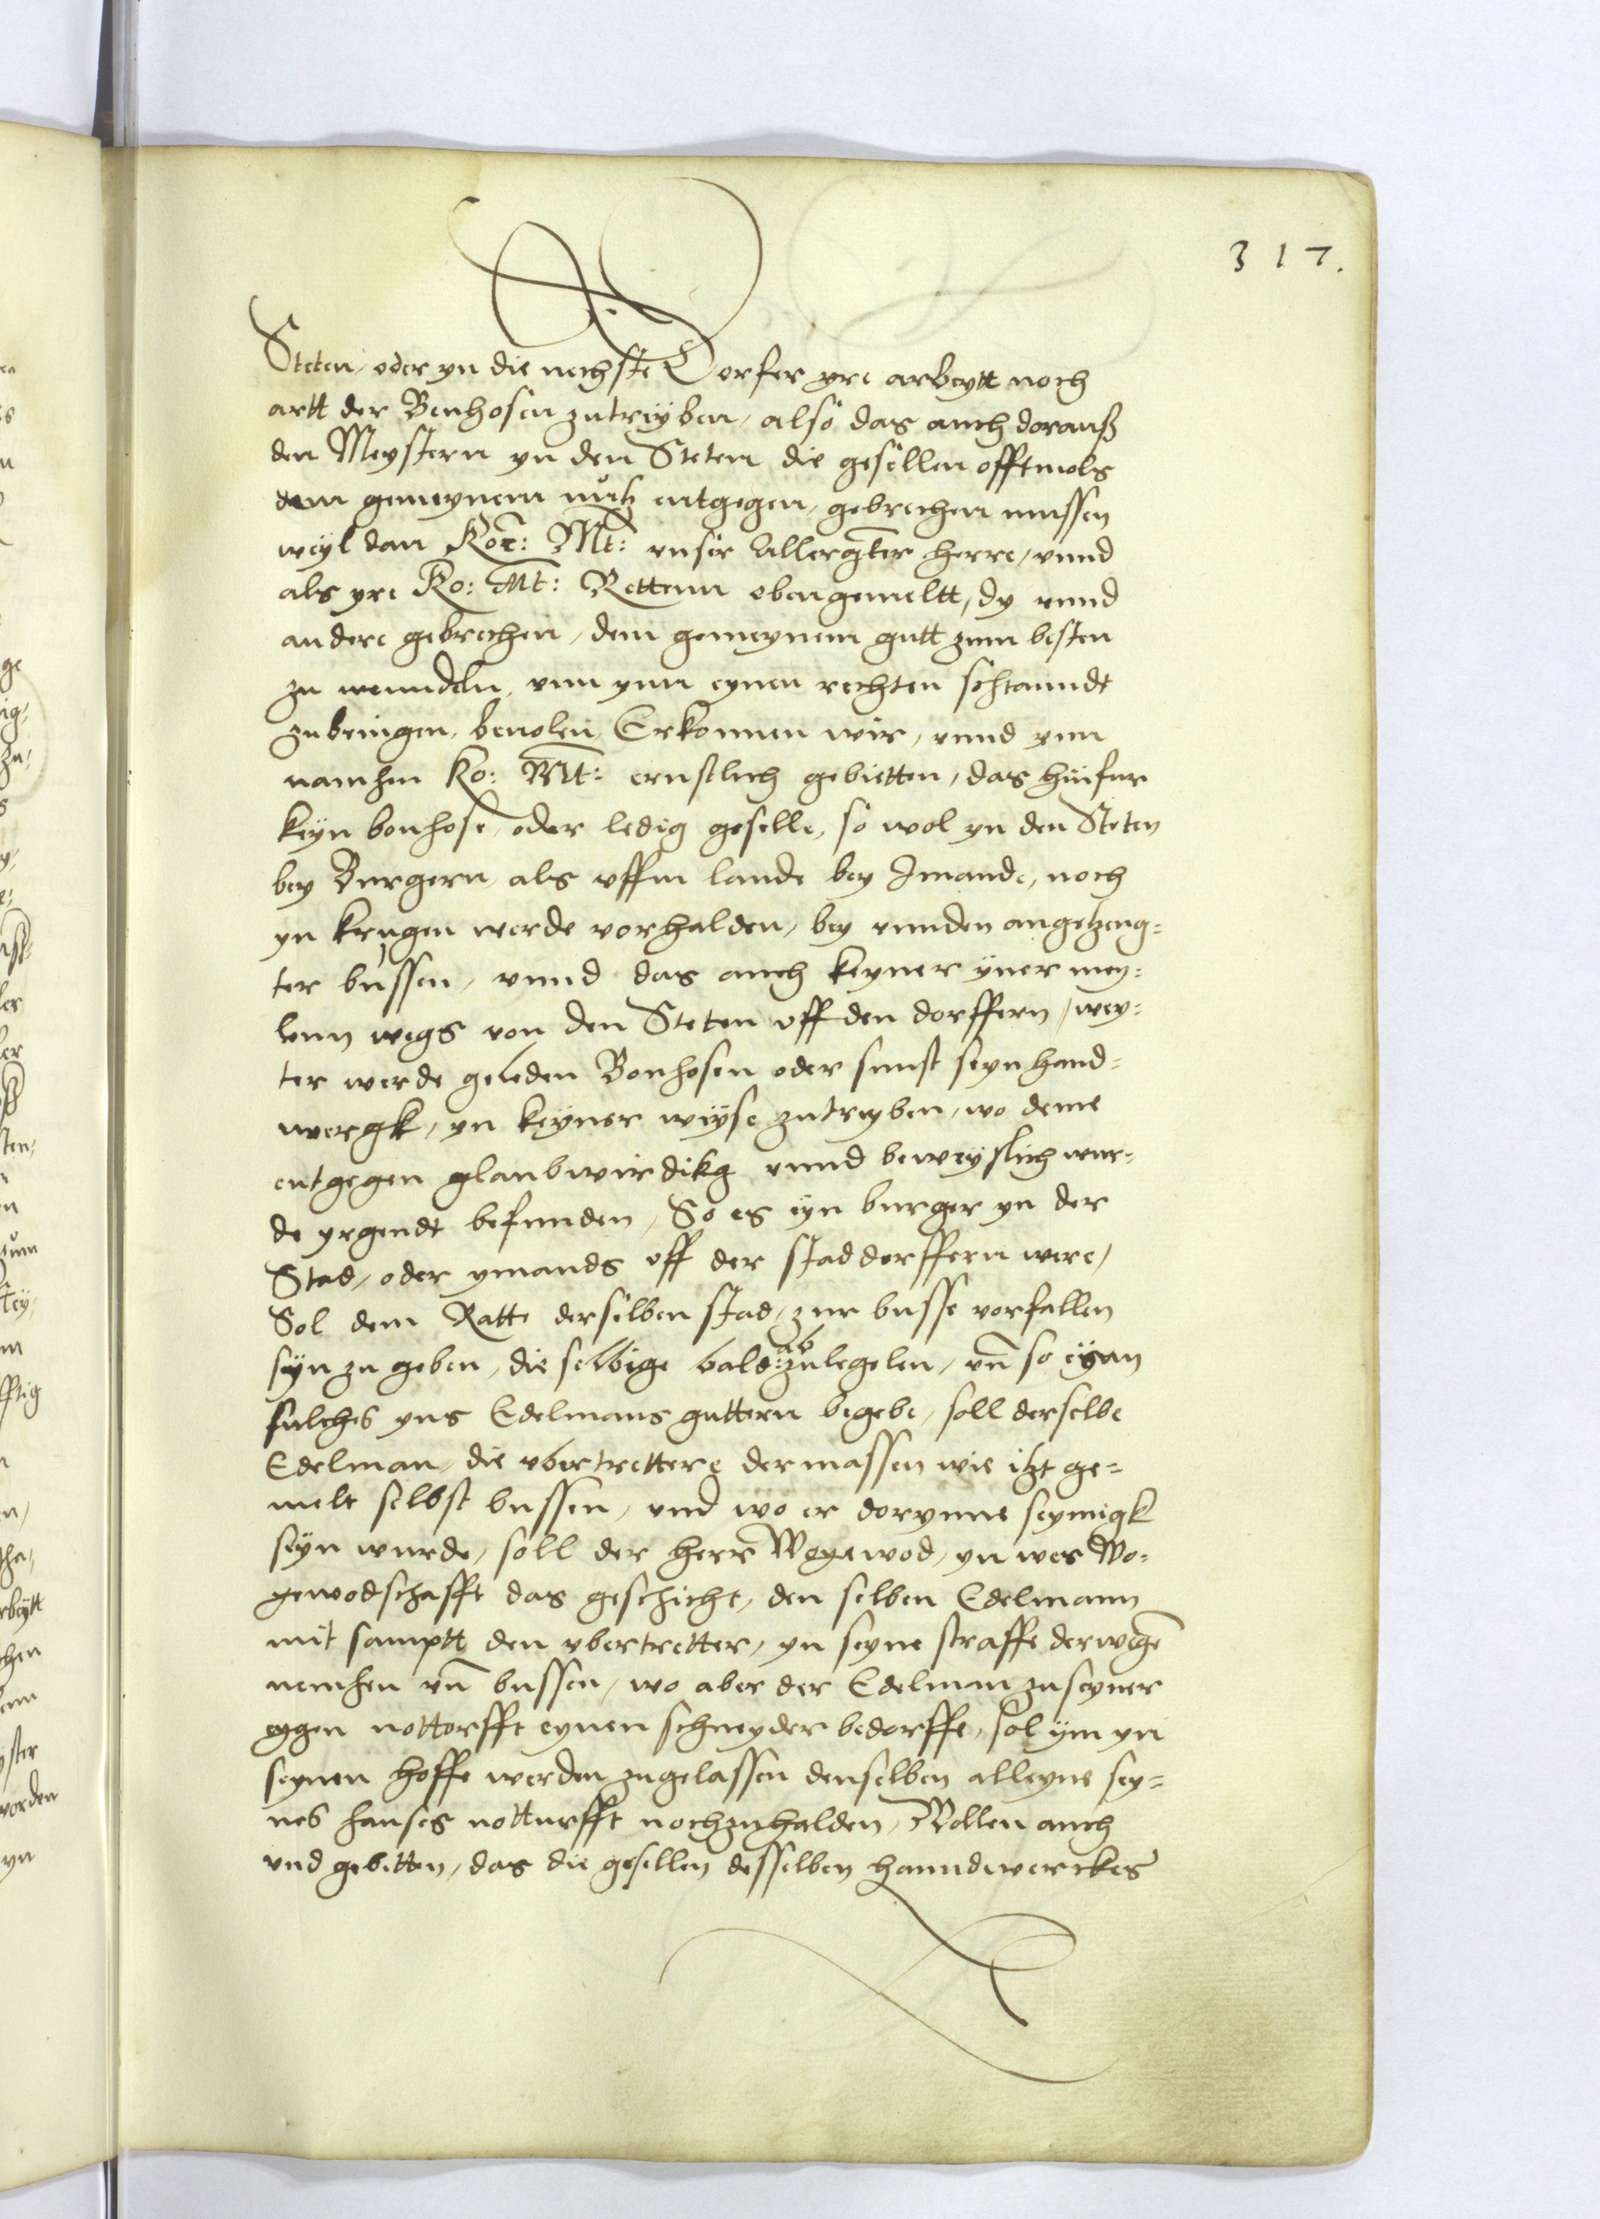 317.
Steten, oder yn die nechste Dorfer yre arbeytt noch
artt der Benhosen zutreyben, also das auch dorauß
den Meystern yn den Steten die gesellen offtmols
dem gemeynem nutz entgegen, gebrechen mussen
weyl dan Kor: Mt: unser Allergster herre, unnd
als yre Ko: Mt: Rettenn obengemeltt, dy unnd
andere gebrechen, dem gemeynem gutt zum besten
zu wenndeln, unn ynn eynen rechten schtanndt
zubringen, bevolen, Erkennen wir, unnd ynn
namhen Ko: Mt: ernstlich gebietten, das hinfur
keyn bonhose, oder ledig geselle, so wol yn den Steten
bey Burgern als uffm lande bey Imande, noch
yn krugen werde vorhalden, bey unnden angetzeng=
ter bussen, unnd das auch keyner yner mey=
lenn wegs von den Steten uff den dorffern, wey=
ter werde geleden Bonhosen oder sunst seyn hand=
wergk, yn keyner weyse zutreyben, wo deme
entgegen glaubwirdikg unnd beweyslich wur=
de yrgendt befunden, So es eyn burger yn der
Stad, oder ymands uff der stad dorffern were,
Sol dem Ratte derselben stad, zur busse vorfallen
seyn zu geben, die selbige bald: ab zulegelen, un so
sulches yns Edelmans guttern begebe, soll derselbe
Edelman, die ubertrettere dermassen wie itzt ge=
melt selbst bussen, und wo er dorynne seymigk
seyn wurde, soll der herr Woyewod, yn wes Wo=
yewodschafft das geschicht, den selben Edelmann
mit samptt den ubertretter, yn seyne straffe derwegen
nemhen un bussen, wo aber der Edelman zu seyner
eygen nottorfft eynen schneyder bedorffte, sol ym yn
seynen hoffe werden zugelassen denselben alleyne sey=
nes hauses notturfft nochzuhalden, Wollen auch
und gebitten, das die gesellen desselben hanndwerckes